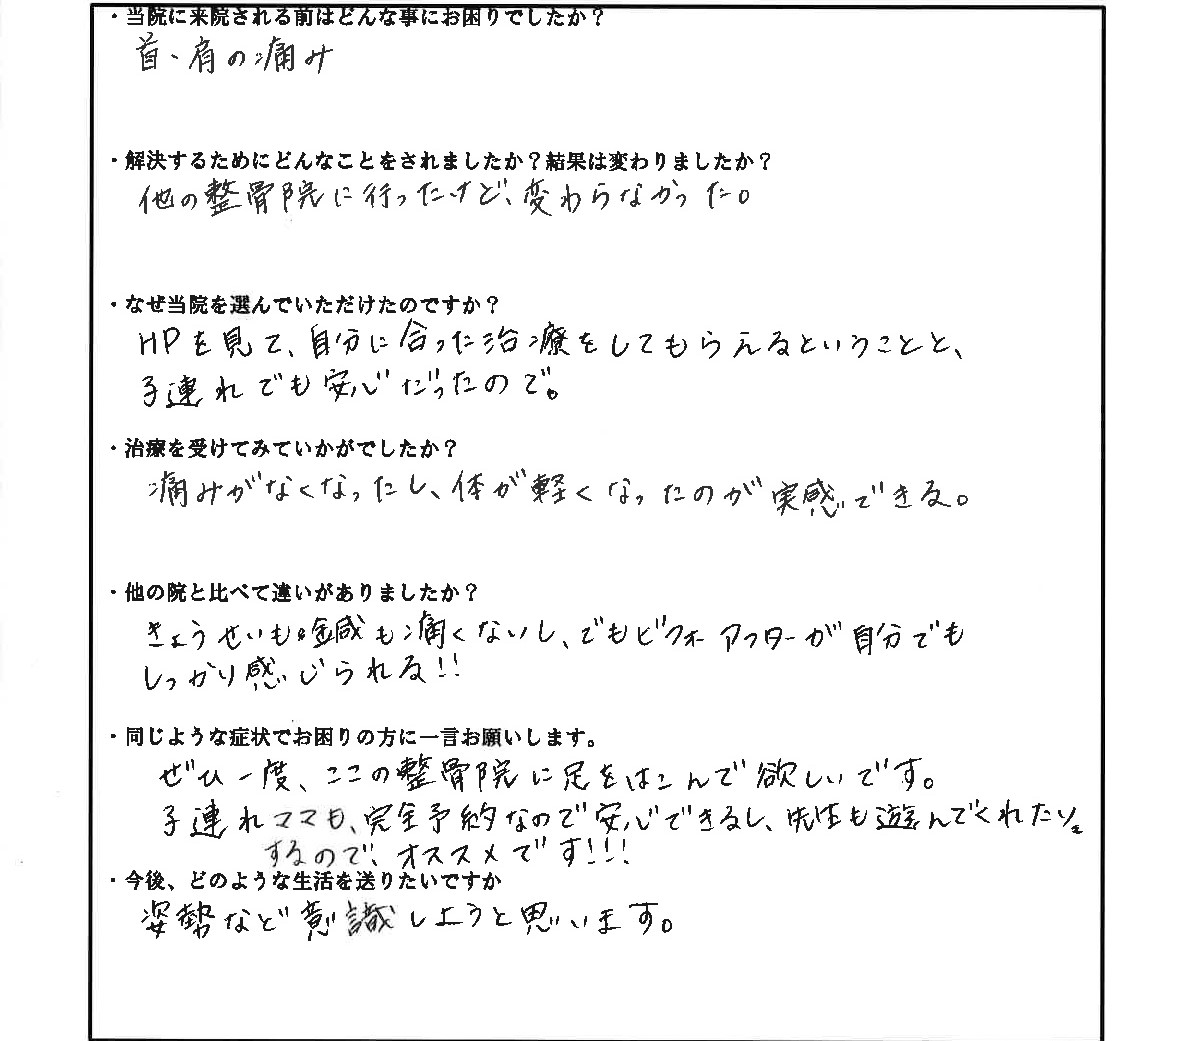 ・当院に来院される前はどんな事にお困りでしたか？
首・肩の痛み
・解決するためにどんなことをされましたか？結果は変わりましたか？
他の整骨院に行ったけど、変わらなかった。
・なぜ当院を選んでいただけたのですか？
HPを見て、自分に合った治療をしてもらえるということと、
子連れでも安心だったので。
・治療を受けてみていかがでしたか？
痛みがなくなったし、体が軽くなったのが実感できる。
・他の院と比べて違いがありましたか？
きょうせいも鍼も痛くないし、でもビフォーアフターが自分でも
しっかり感じられる!!
・同じような症状でお困りの方に一言お願いします。
ぜひ一度、ここの整骨院に足をはこんで欲しいです。
子連れママも、完全予約なので安心できるし、先生も遊んでくれたり
するので、オススメです!!!
・今後、どのような生活を送りたいですか
姿勢など意識しようと思います。